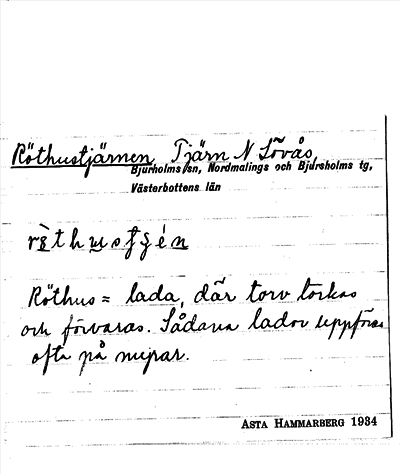 Röthustjärnen, Tjärn N Lövås,
Bjurholms sn, Nordmalings och Bjurholms tg,
Västerbottens län
Röthus = lada, där torv torkas
och förvaras. Sådana lador uppföras
ofta på myrar.
ASTA HAMMARBERG 1934